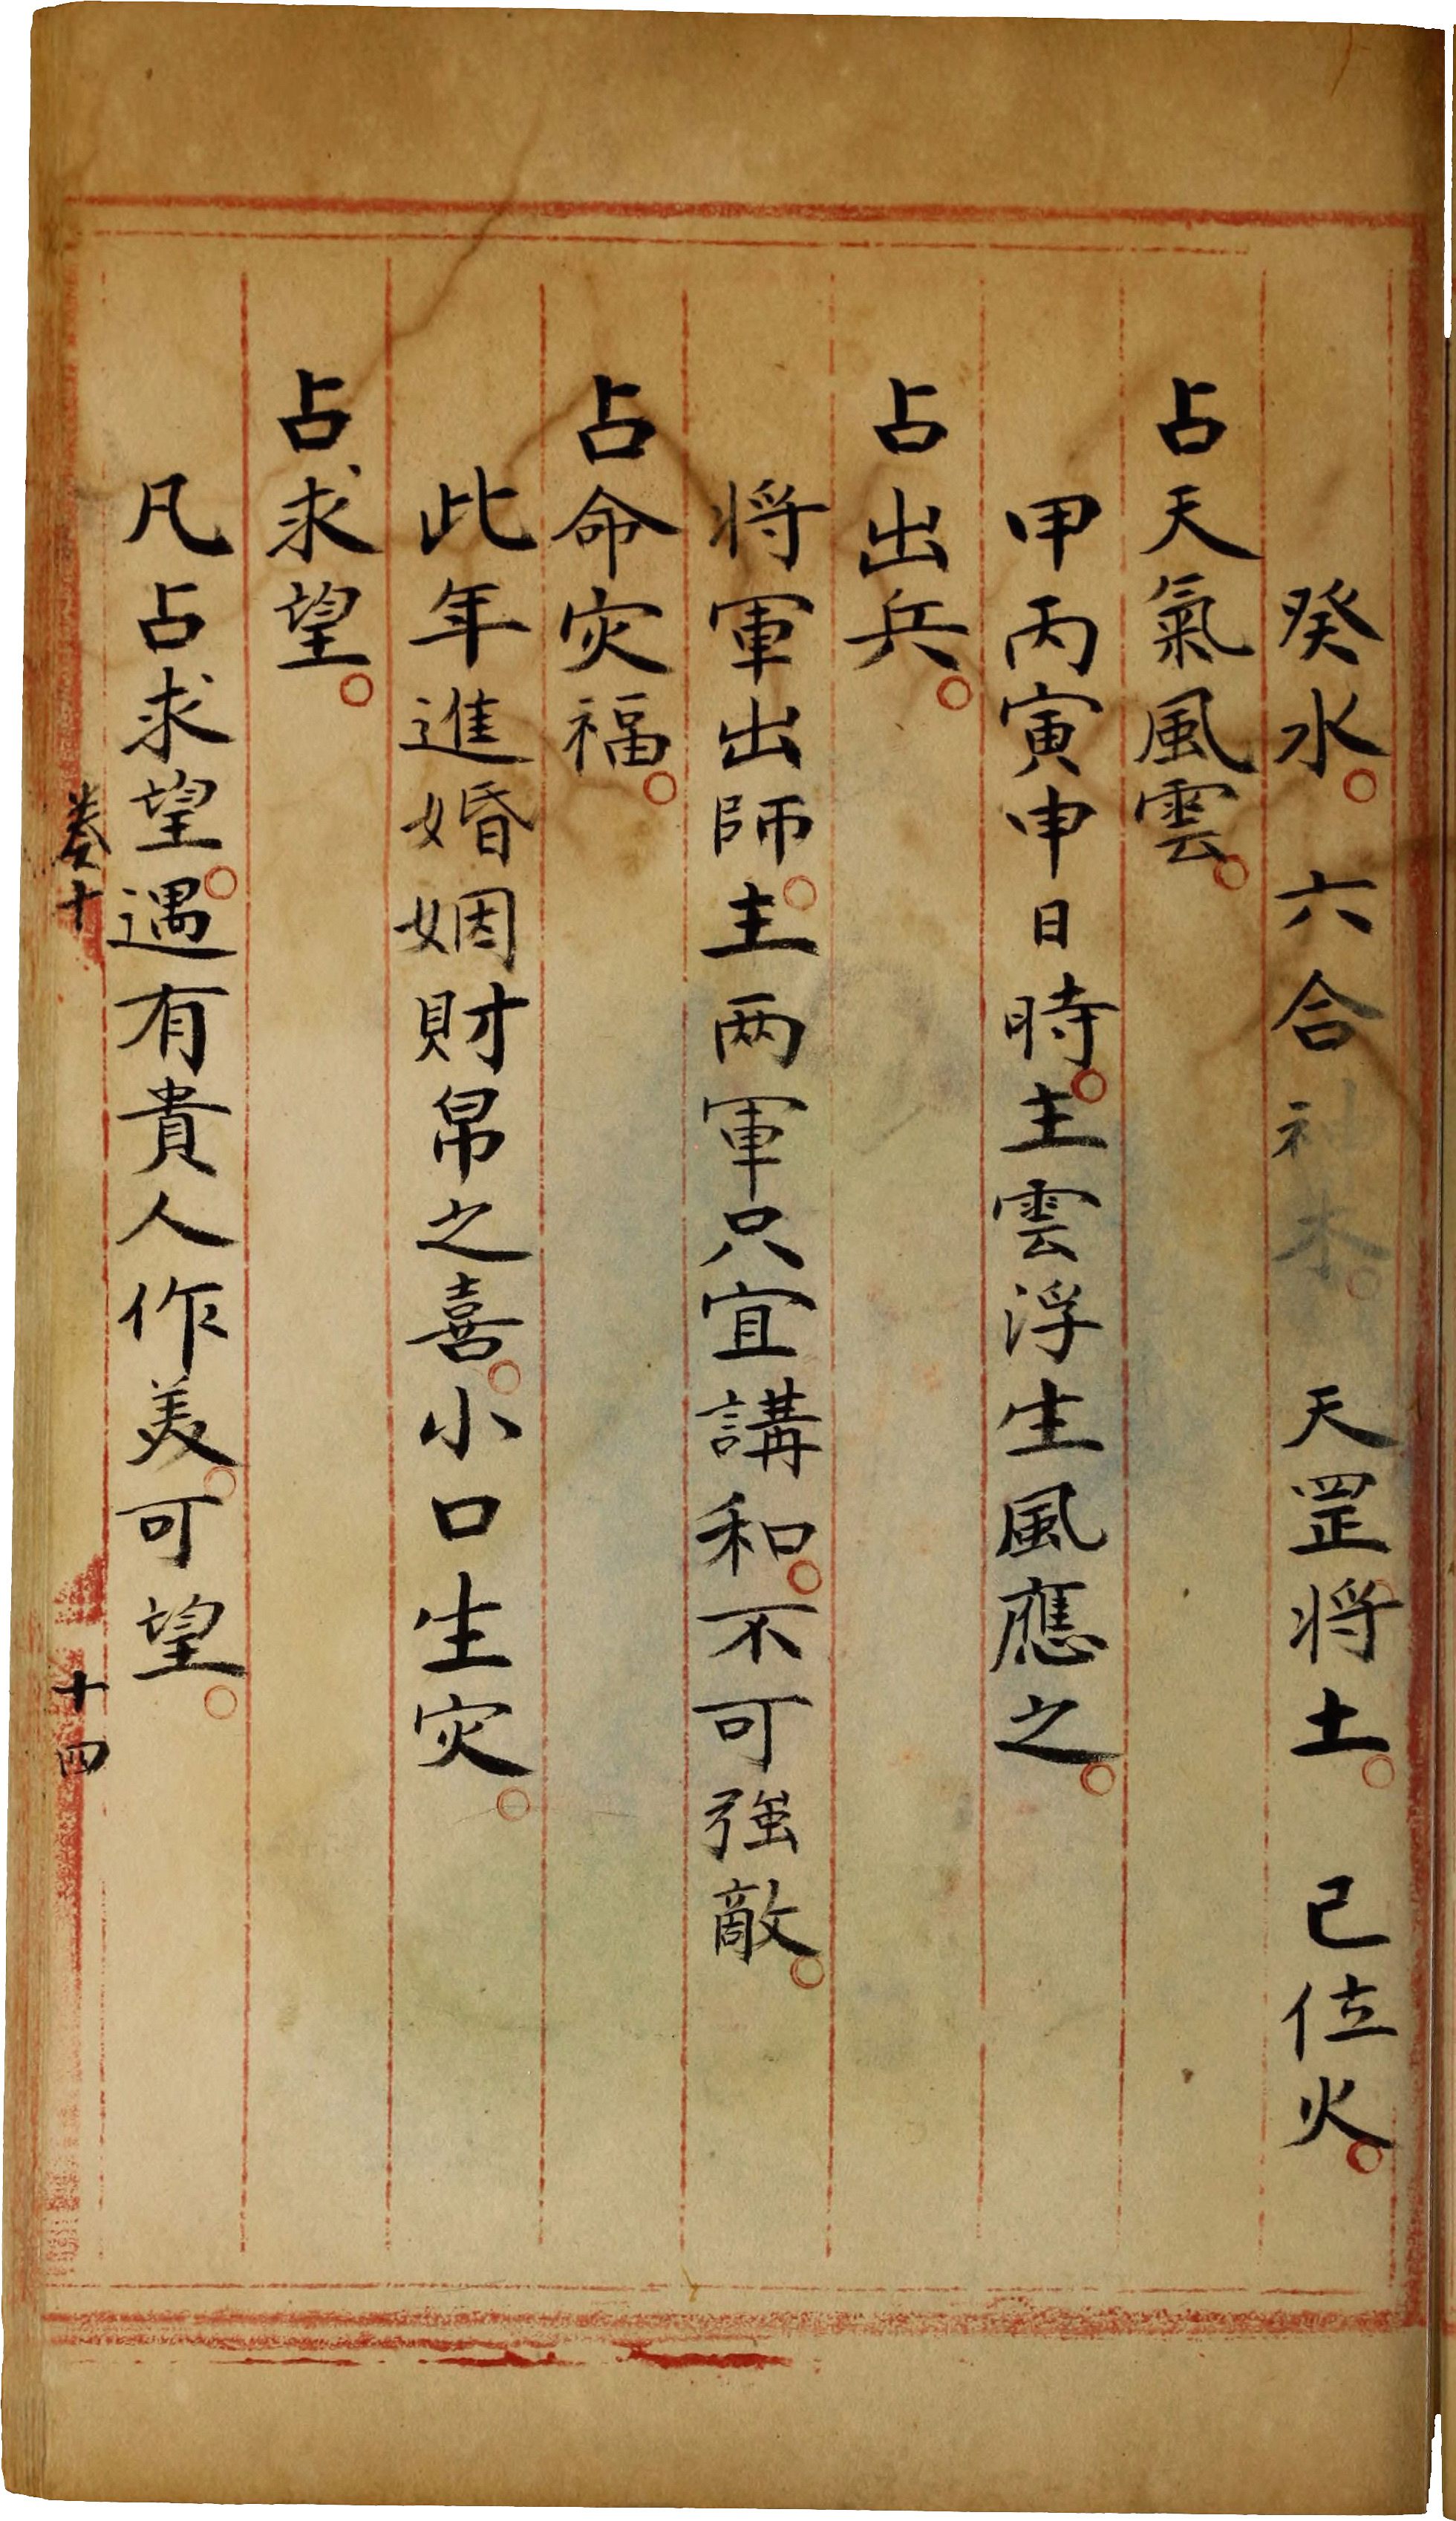 癸水。六合神木。天罡将土。已位火。
占天氣風雲。
甲丙寅申日時。主雲浮生風應之。
占出兵。
将軍出師。主两軍只宜講和。不可強敵。
占命灾福。
此年進婚姻財帛之喜。小口生灾。
占求望。
凡占求望。遇有貴人作美。可望。
卷十
十四